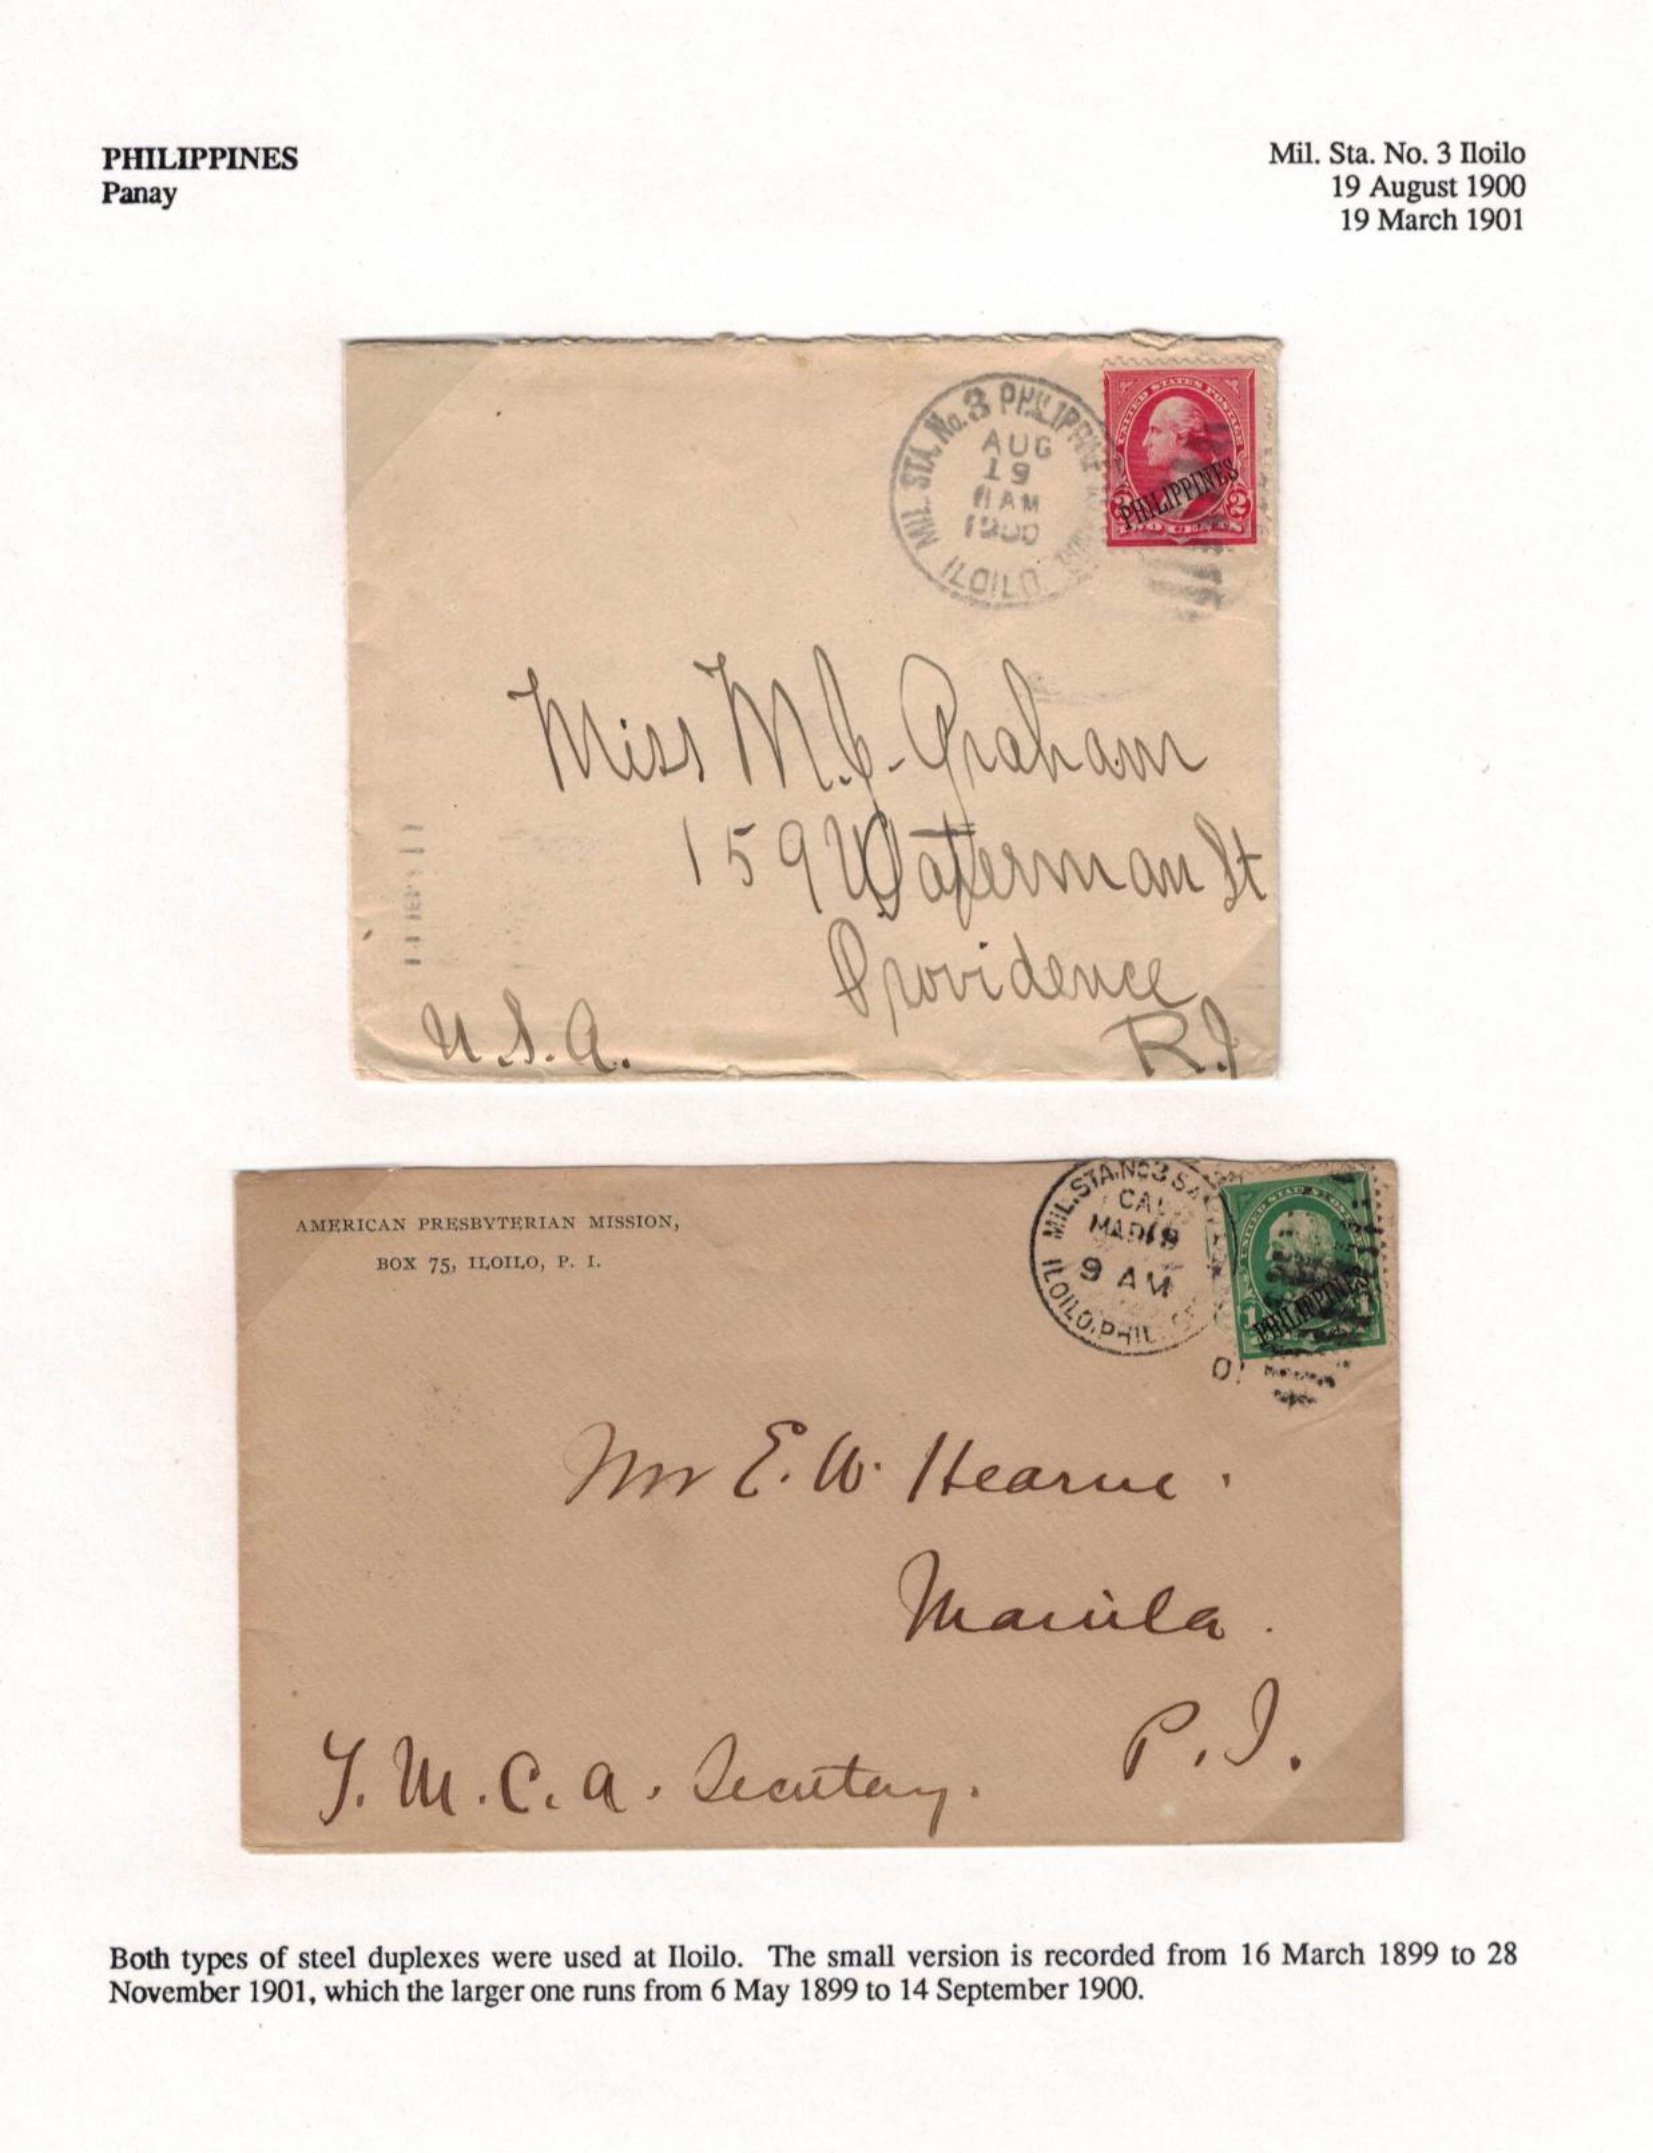 PHILIPPINES
Panay
Mil. Sta. No. 3 Iloilo
19 August 1900
19 March 1901
MIL. STA. No. 3 PHILIPPINE
AUG
19
11 AM
1900
ILOILO
UNITED STATES POSTAGE
PHILIPPINES
2 2
TWO CENTS
Miss M. J. Graham
159 Waterman St
Providence
R.I
U.S.A.
AMERICAN PRESBYTERIAN MISSION,
BOX 75, ILOILO, P. I.
MIL. STA. No 3 SA
CAL
MAR 19
9 AM
ILOILO, PHIL
PHILIPPINES
1 1
Mr E. W. Hearne.
Manila.
P. I.
Y. M. C. A. Secretary.
Both types of steel duplexes were used at Iloilo. The small version is recorded from 16 March 1899 to 28
November 1901, which the larger one runs from 6 May 1899 to 14 September 1900.